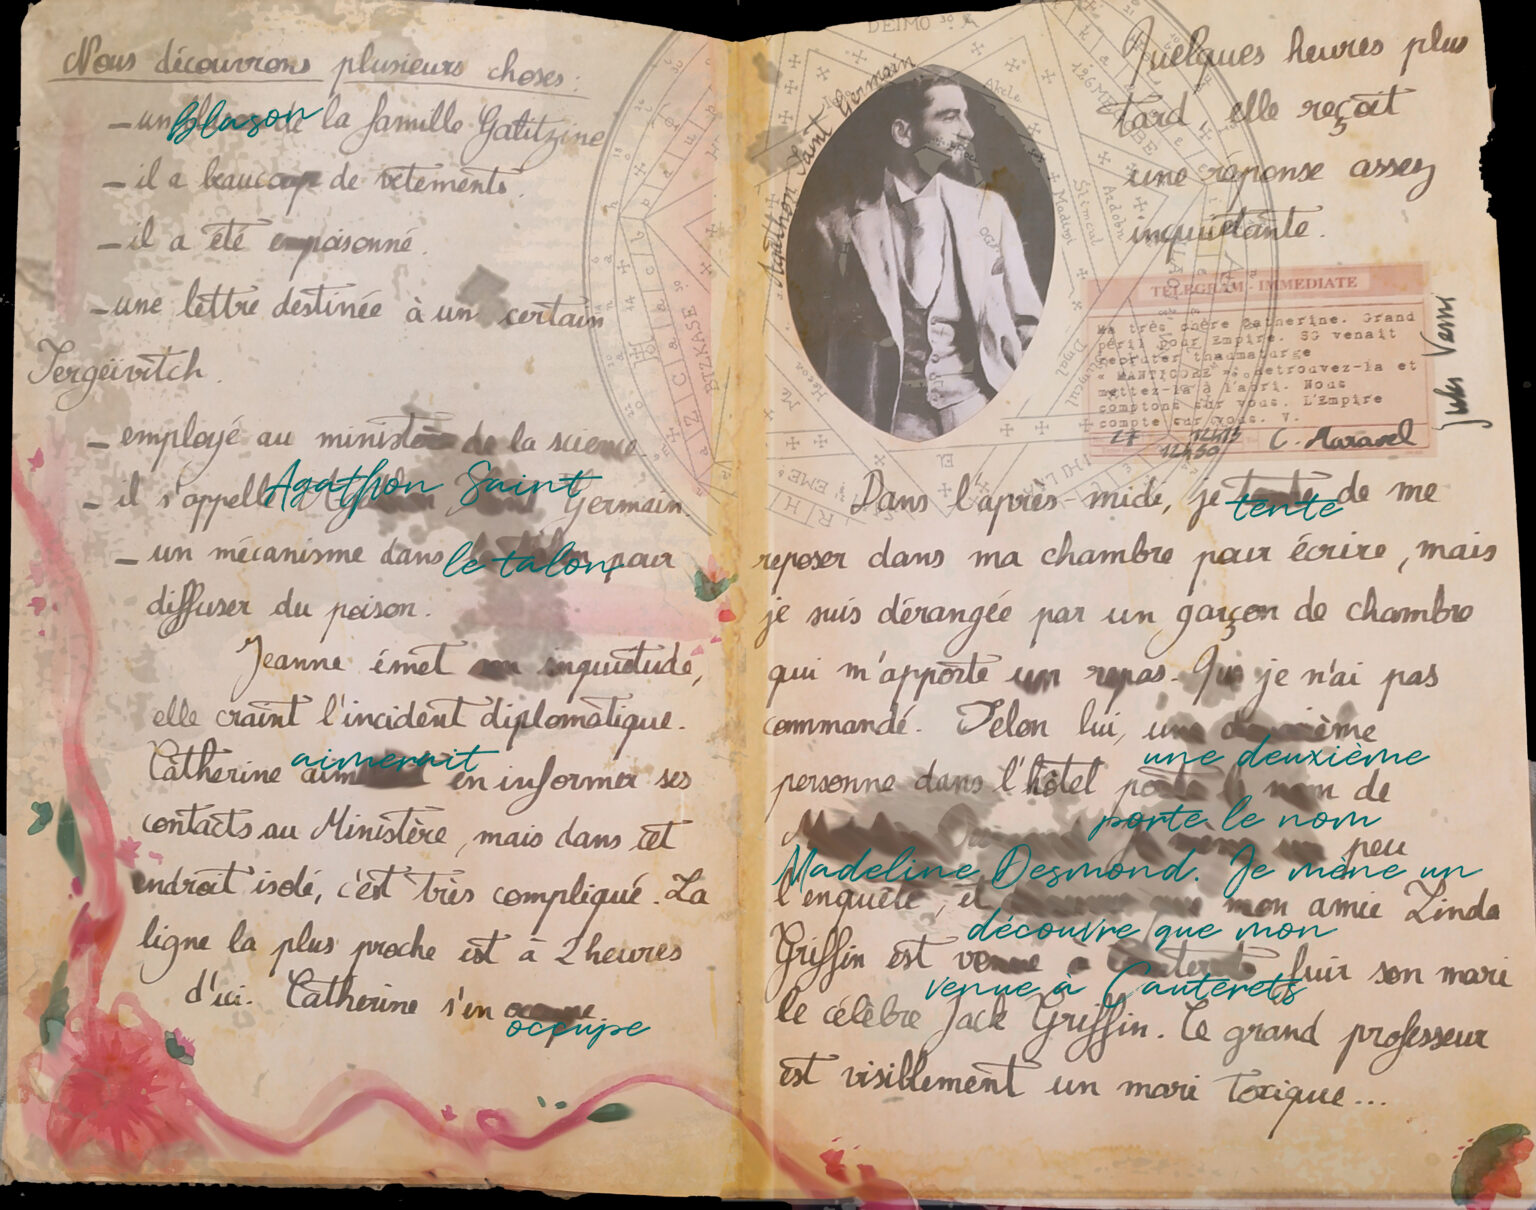 Nous découvrons plusieurs choses:
- un Blason de la famille Galitzine
- il a beaucoup de vêtements.
- il a été empoisonné.
- une lettre destinée à un certain
Sergeïvitch.
- employé au ministère de la science.
- il s'appelle Agathon Saint Germain.
- un mécanisme dans le talon pour
diffuser du poison.
Jeanne émet son inquiétude,
elle craint l'incident diplomatique.
Catherine aimerait en informer ses
contacts au Ministère, mais dans cet
endroit isolé, c'est très compliqué. La
ligne la plus proche est à 2 heures
d'ici. Catherine s'en occupe
Agathon Saint Germain
Quelques heures plus
tard, elle reçoit
une réponse assez
inquiétante.
TELEGRAM - IMMEDIATE
Ma très chère Catherine. Grand
péril pour Empire. SG venait
recruter thaumaturge
« MANTICORE ». Retrouvez-la et
mettez-la à l'abri. Nous
comptons sur vous. L'Empire
compte sur vous. V.
27 12H15 C. Maravel
12H30
Jules Verne
Dans l'après-midi, je tente de me
reposer dans ma chambre pour écrire, mais
je suis dérangée par un garçon de chambre
qui m'apporte un repas. Que je n'ai pas
commandé. Selon lui, une deuxième
personne dans l'hôtel porte le nom de
Madeline Desmond. Je mène un peu
l'enquête, et découvre que mon amie Linda
Griffin est venue à Cauterets fuir son mari
le célèbre Jack Griffin. Ce grand professeur
est visiblement un mari toxique...
DEIMO
BTZKASE